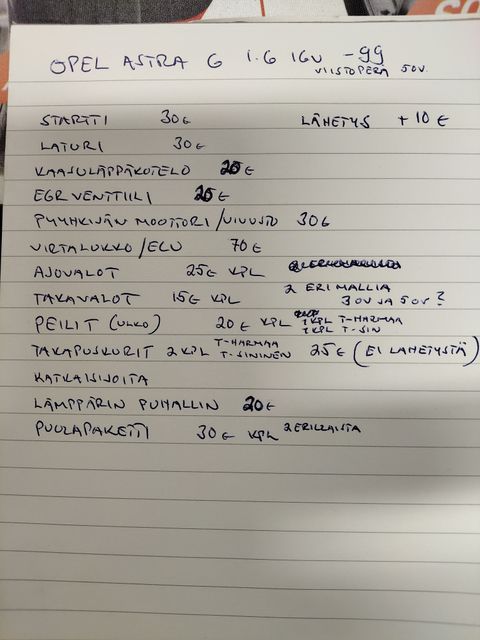 OPEL ASTRA G 1.6 16V -99
VIISTOPERÄ 5OV.
STARTTI 30€ LÄHETYS +10 €
LATURI 30€
KAASULÄPPÄKOTELO 25€
EGR VENTTIILI 25€
PYYHKIJÄN MOOTTORI/VIVUSTO 30€
VIRTALUKKO/ECU 70€
AJOVALOT 25€ KPL
TAKAVALOT 15€ KPL 2 ERI MALLIA
3 OV JA 5OV ?
PEILIT (ULKO) 20€ KPL 1KPL T-HARMAA
1KPL T-SIN
TAKAPUSKURIT 2KPL T-HARMAA
T-SININEN 25€ (EI LÄHETYSTÄ)
KATKAISIJOITA
LÄMPPÄRIN PUHALLIN 20€
PUOLAPAKETTI 30€ KPL 2 ERILLAISTA